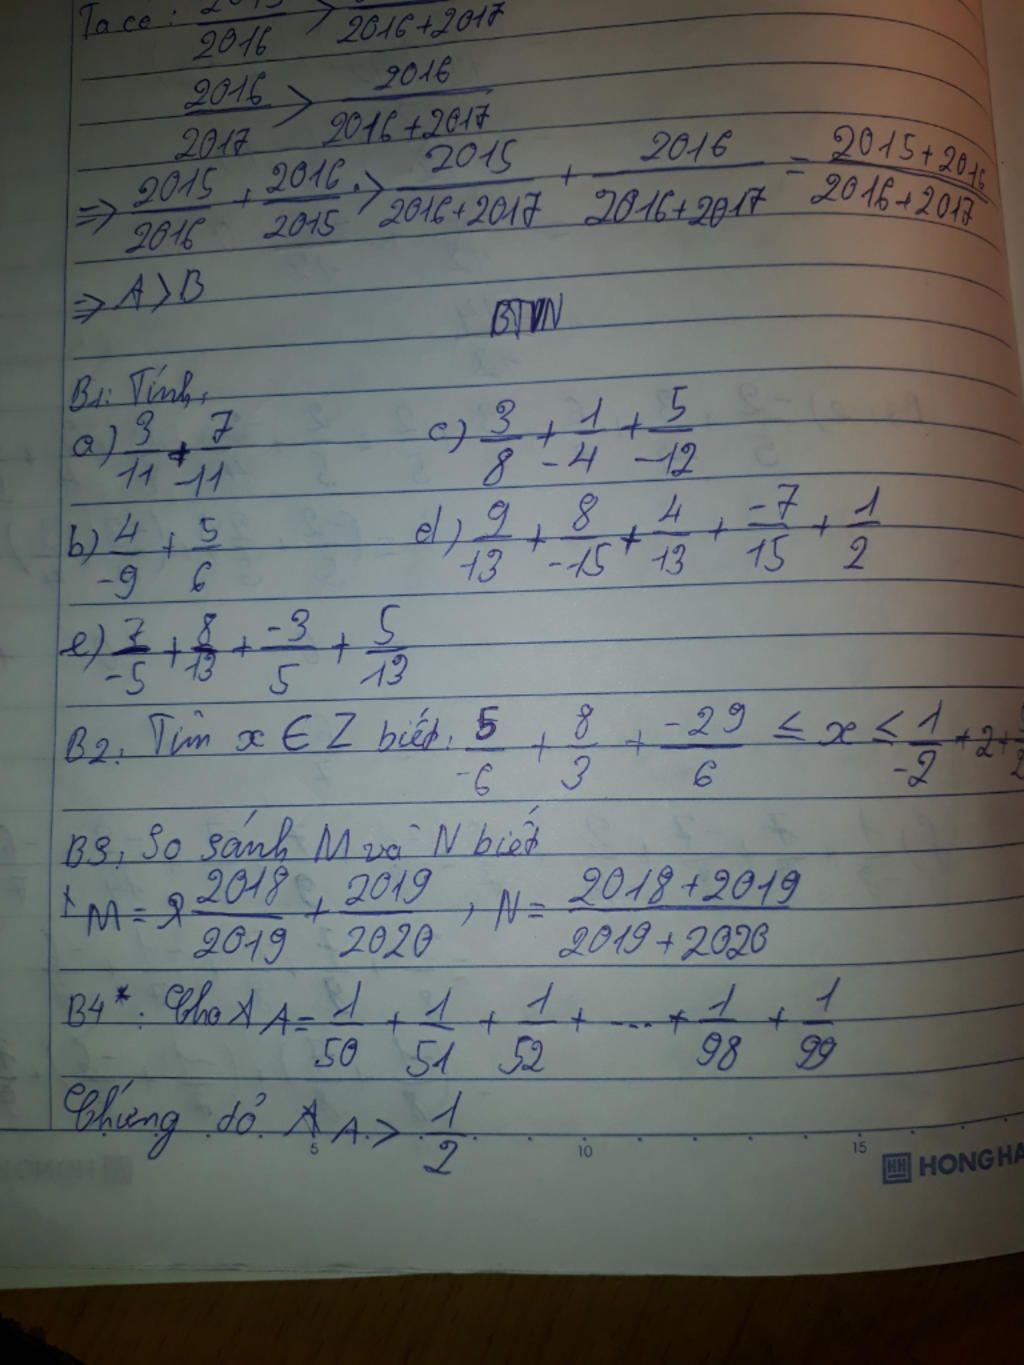 Ta có: 2015/2016 > /2016+2017
2016/2017 > 2016/2016+2017
⇒ 2015/2016 + 2016/2015 > 2015/2016+2017 + 2016/2016+2017 = 2015+2016/2016+2017
⇒ A > B
BTVN
B1: Tính.
a) 3/11 + 7/-11 c) 3/8 + 1/-4 + 5/-12
b) 4/-9 + 5/6 d) 9/13 + 8/-15 + 4/13 + -7/15 + 1/2
e) 7/-5 + 8/13 + -3/5 + 5/13
B2: Tìm x ∈ Z biết: 5/-6 + 8/3 + -29/6 ≤ x ≤ 1/-2 + 2 +
B3: So sánh M và N biết
M = 2018/2019 + 2019/2020 , N = 2018+2019/2019+2020
B4*: Cho A = 1/50 + 1/51 + 1/52 + ... + 1/98 + 1/99
Chứng tỏ A > 1/2
5 10 15
HONG HA